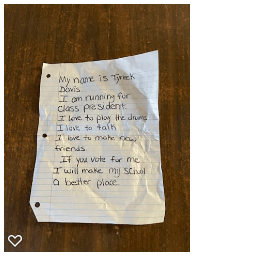 My name is Tyreek
Davis
I am running for
class president.
I love to play the drums
I love to talk
I love to make new
friends.
If you vote for me
I will make my school
a better place.